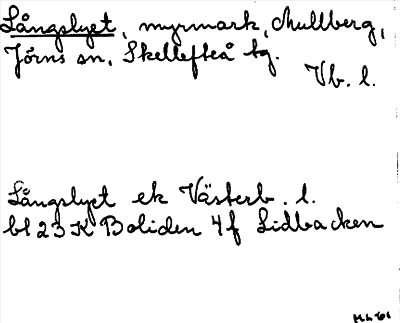 Långslyet, myrmark, Mullberg,
Jörns sn, Skellefteå tg.
Vb. l.
Långslyet ek Västerb. l.
bl 23 K Boliden 4f Lidbacken